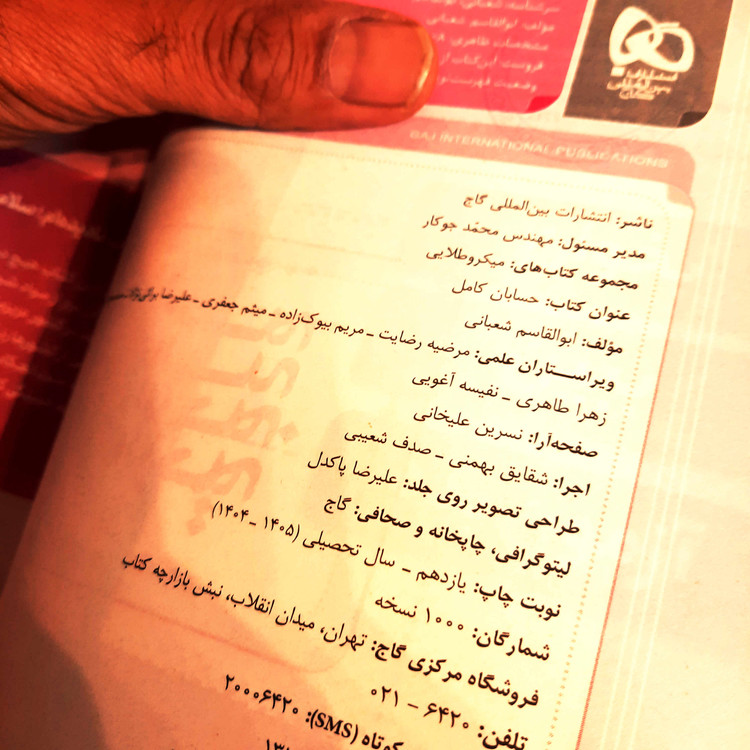 سرشناسه: شعبانی،
مؤلف: ابوالقاسم شعبانی
مشخصات ظاهری:
فروست: این کتاب از
وضعیت فهرست
GAJ INTERNATIONAL PUBLICATIONS
ناشر: انتشارات بین‌المللی گاج
مدیر مسئول: مهندس محمّد جوکار
مجموعه کتاب‌های: میکروطلایی
عنوان کتاب: حسابان کامل
مؤلف: ابوالقاسم شعبانی
ویراستاران علمی: مرضیه رضایت ـ مریم بیوک‌زاده ـ میثم جعفری ـ علیرضا
زهرا طاهری ـ نفیسه آغویی
صفحه‌آرا: نسرین علیخانی
اجرا: شقایق بهمنی ـ صدف شعیبی
طراحی تصویر روی جلد: علیرضا پاکدل
لیتوگرافی، چاپخانه و صحافی: گاج
نوبت چاپ: یازدهم ـ سال تحصیلی (۱۴۰۵ ـ ۱۴۰۴)
شمارگان: ۱۰۰۰ نسخه
فروشگاه مرکزی گاج: تهران، میدان انقلاب، نبش بازارچه کتاب
تلفن: ۶۴۲۰ – ۰۲۱
کوتاه (SMS): ۲۰۰۰۶۴۲۰